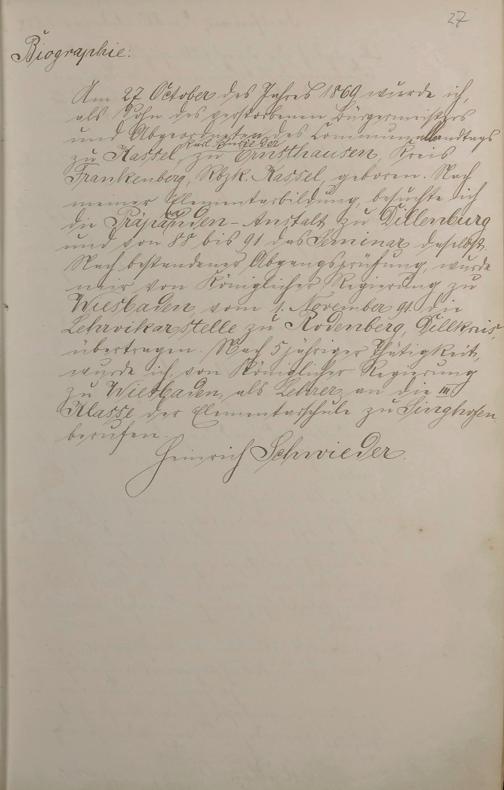 27
Biographie:
Am 27 October des Jahres 1869 wurde ich,
als Sohn des verstorbenen Bürgermeisters
und Abgeordneten des Communallandtags
zu Kassel, zu Ernsthausen, Kreis
Frankenberg, Rbzk. Kassel, geboren. Nach
meiner Elementarbildung, besuchte ich
die Präparanden-Anstalt zu Dillenburg
und von 88 bis 91 das Seminar daselbst.
Nach bestandener Abgangsprüfung, wurde
mir von Königlicher Regierung zu
Wiesbaden, vom 1. November 91 die
Lehrvikarstelle zu Rodenberg, Dillkreis,
übertragen. Nach 5jähriger Thätigkeit,
wurde ich von Königlicher Regierung
zu Wiesbaden, als Lehrer an die III
Klasse der Elementarschule zu Singhofen
berufen.
Heinrich Schwieder.